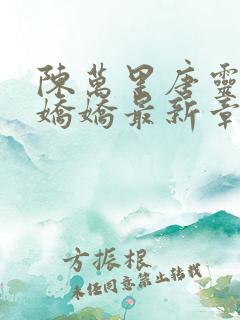 陳萬里唐靈
嬌嬌最新章
方振根
未经同意禁止转载